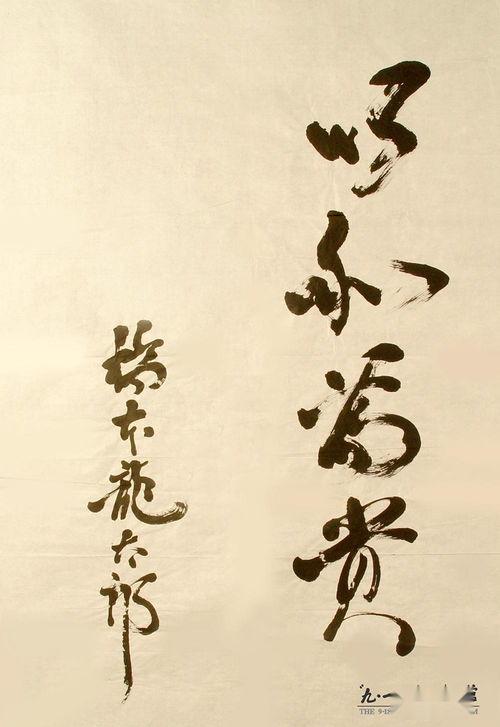 以和為貴
橋本龍太郎
"九·一
THE 9·18